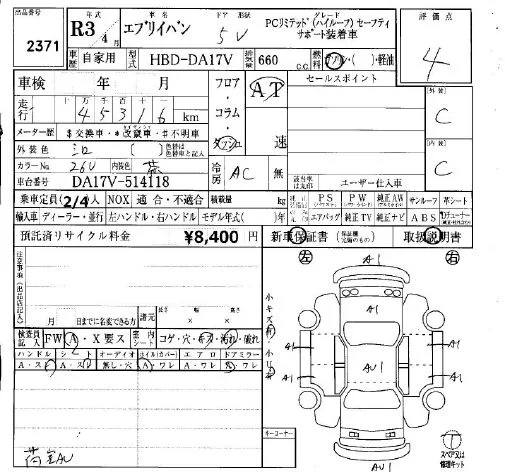 出品番号 2371
年式 R3 4月
車名 エブリイバン
ドア 形状 5V
グレード PCリミテッド(ハイルーフ)セーフティサポート装着車
評価点 4
歴 自家用
型式 HBD-DA17V
排気量 660 c.c.
燃料 ガソリン・( )・軽油
車検 年 月
走行 十 万 千 百 十 一
45316 km
フロア・コラム・ダッシュ
AT 速
セールスポイント
外装 C
内装 C
メーター歴 $交換車・*改ざん車・#不明車
外装色 [ ] 色替は色替車と記入
カラーNo. 26U 内装色 茶
冷房 AC 無
車台番号 DA17V-514118
ユーザー仕入車
乗車定員 2/4人 NOX 適合・不適合 積載量 kg
PS PW 純正AW サンルーフ 革シート
輸入車 ディーラー・並行 左ハンドル・右ハンドル モデル年式( )年
エアバッグ 純正TV 純正ナビ ABS
預託済リサイクル料金 ¥8,400 円
新車保証書 取扱説明書
注意事項(出品店記入)
月 日までに名変できる方
諸元 長さ 幅 高さ × ×
検査員記入 FW A・X要ス 室内 シート コゲ・穴・キズ・汚れ・破れ
ハンドル シート オーディオ ホイル(カバー) エアロ ドアミラー
A・ス A・ス 無し・欠 A・ワレ A・ワレ A・ワレ
荷室AU
左 右
小キズ有
小凹有
A1
A1
A1 A1
AU1
A1 A1
A1
AU1
キーコーナー
スペア又は修理キット